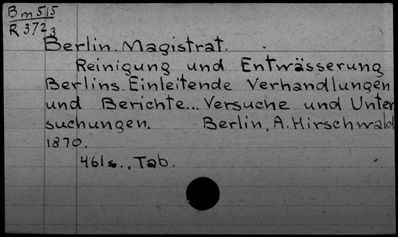 Bm515
R3723
Berlin. Magistrat.
Reinigung und Entwässerung
Berlins. Einleitende Verhandlungen
und Berichte... Versuche und Unter
suchungen. Berlin, A. Hirschwald
1870.
461s., Tab.